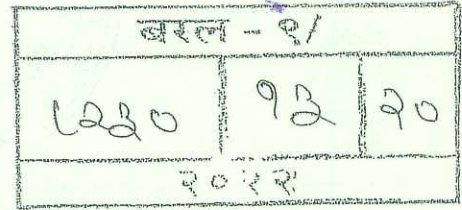 बरल - १/
८२३० १३ २०
२०२२